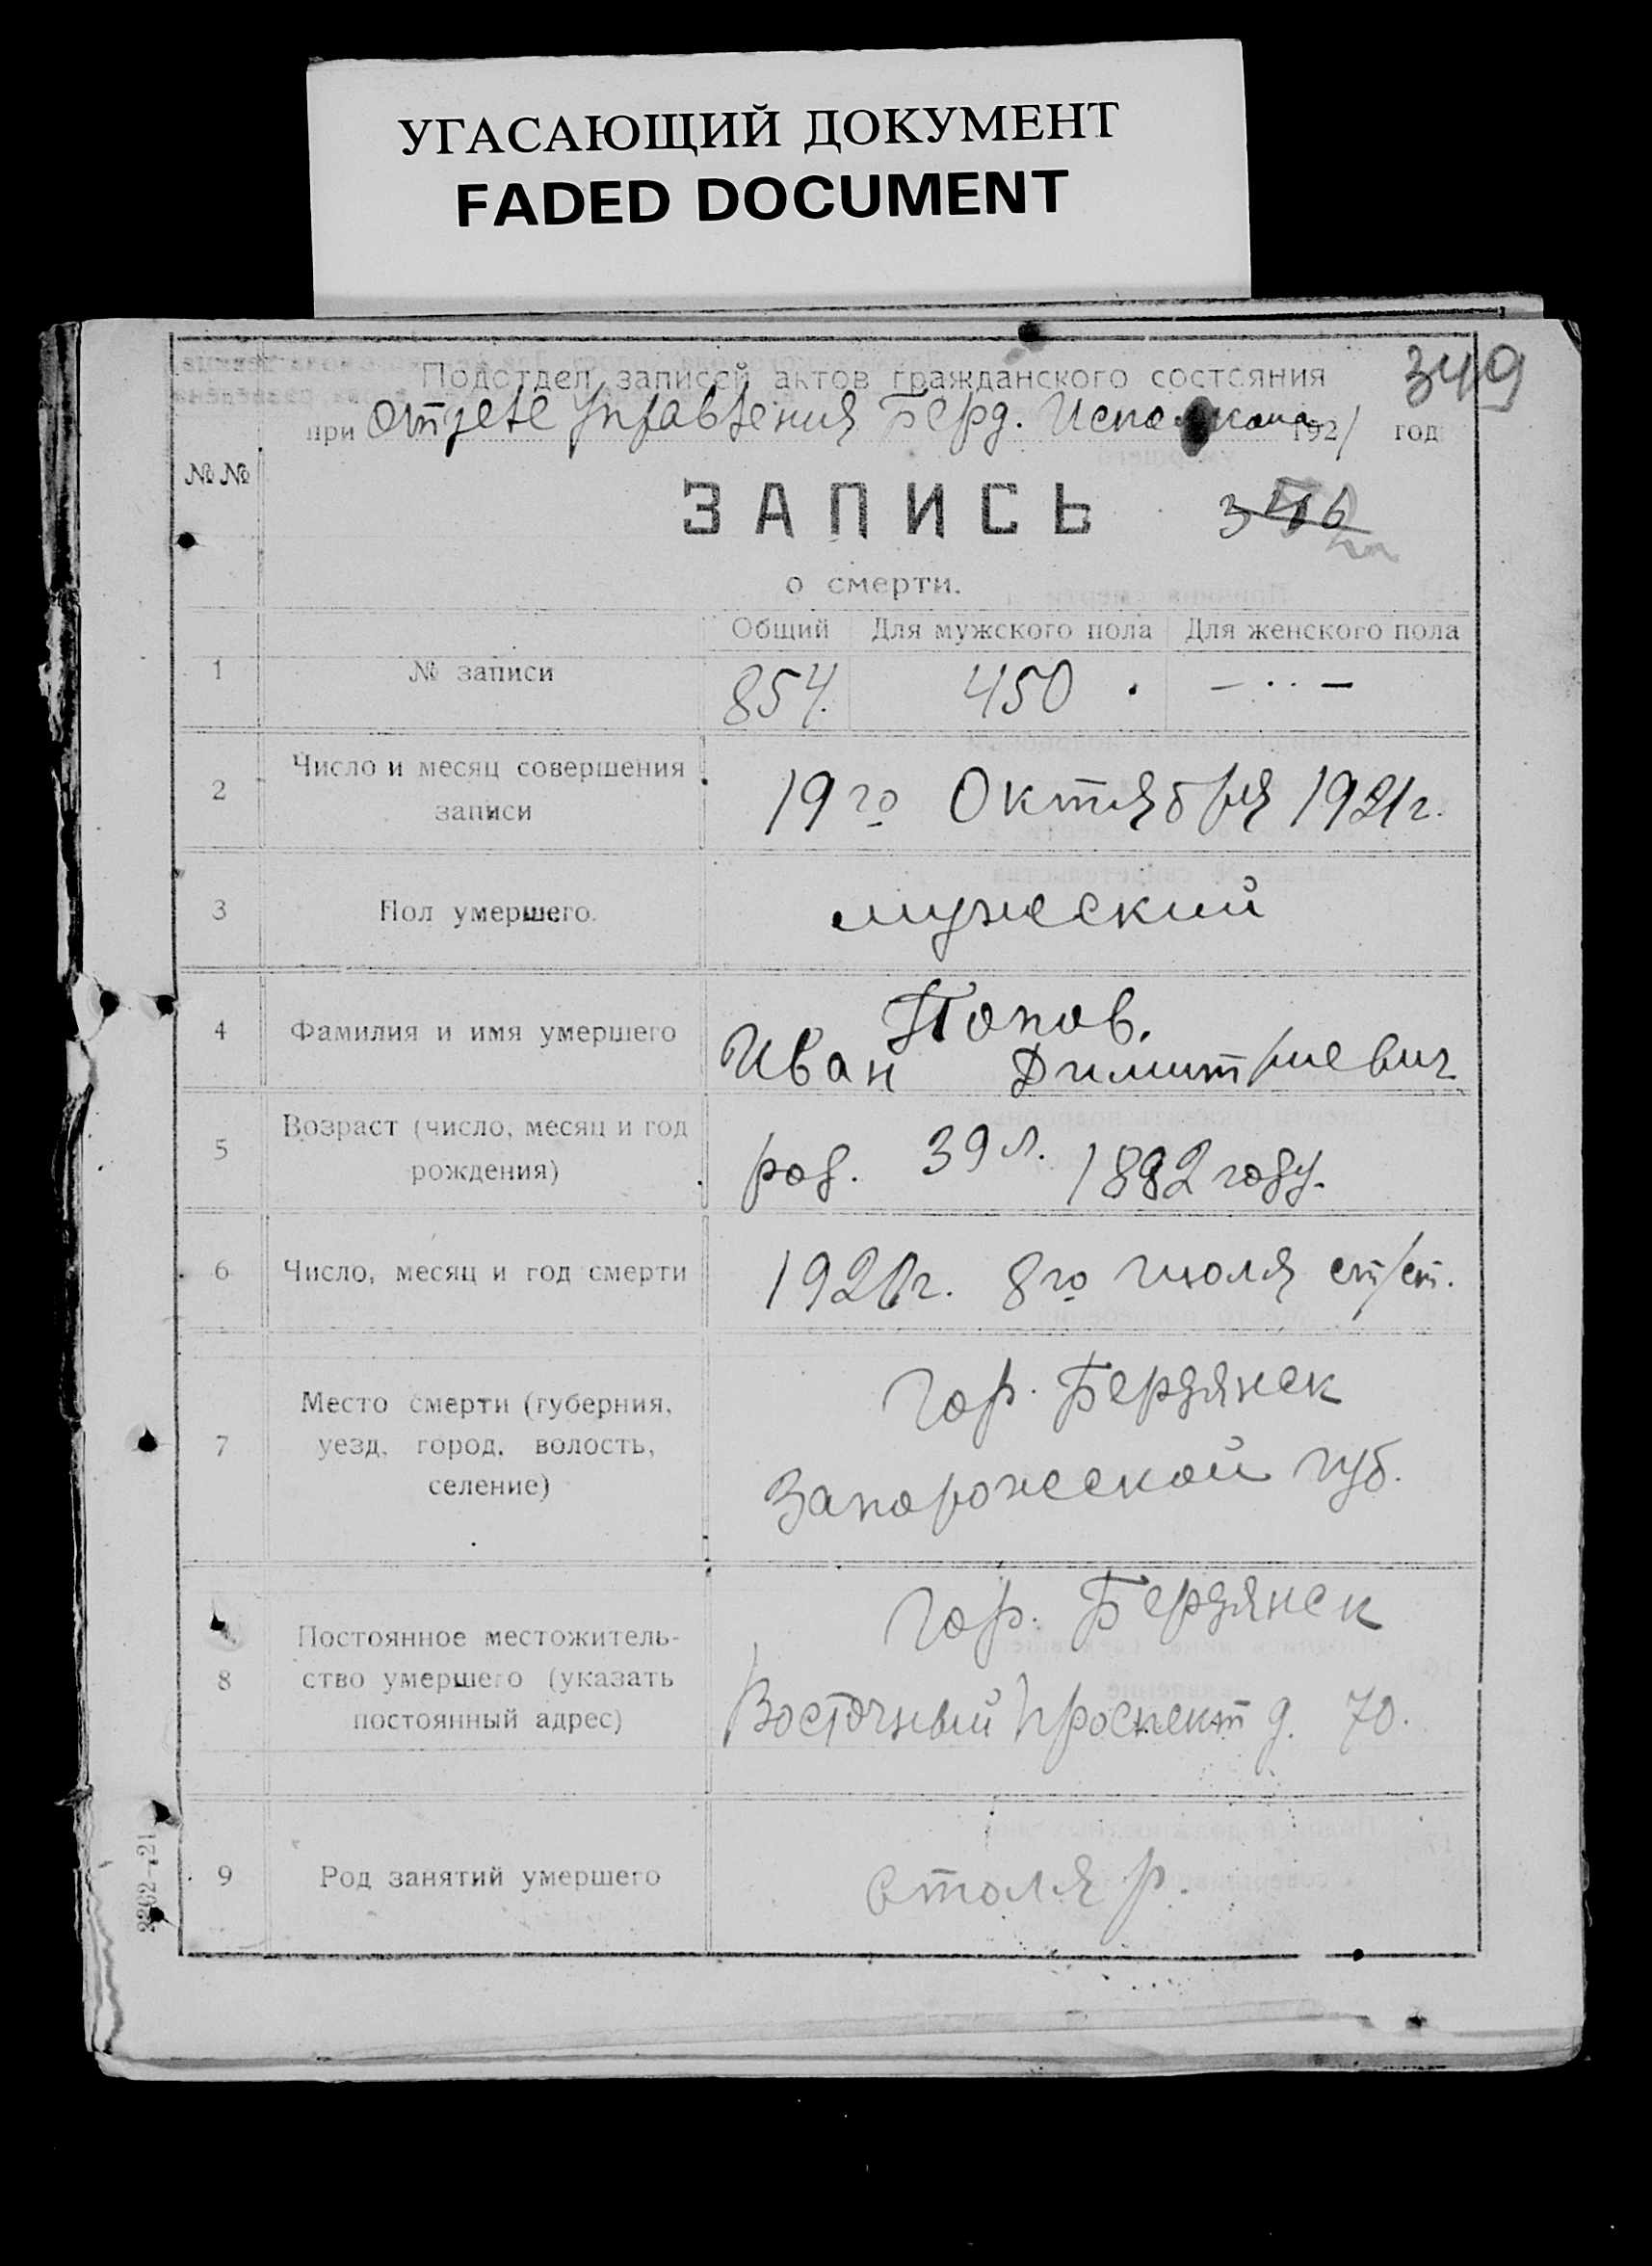 УГАСАЮЩИЙ ДОКУМЕНТ
FADED DOCUMENT
349
Подотдел записей актов гражданского состояния
при отделе управления Берд. Исполкома 1921 год
№№
ЗАПИСЬ
о смерти.
Общий Для мужского пола Для женского пола
1 № записи 854. 450 . — ·· —
2 Число и месяц совершения
записи 19го Октября 1921г.
3 Пол умершего. мужеский
4 Фамилия и имя умершего Попов.
Иван Димитриевич
5 Возраст (число, месяц и год
рождения) род. 39 л. 1882 году.
6 Число, месяц и год смерти 1921г. 8го июля ст/ст.
7 Место смерти (губерния,
уезд, город, волость,
селение)
гор. Бердянск
Запорожеской губ.
8 Постоянное местожитель-
ство умершего (указать
постоянный адрес)
гор. Бердянск
Восточный проспект д. 70.
9 Род занятий умершего столяр.